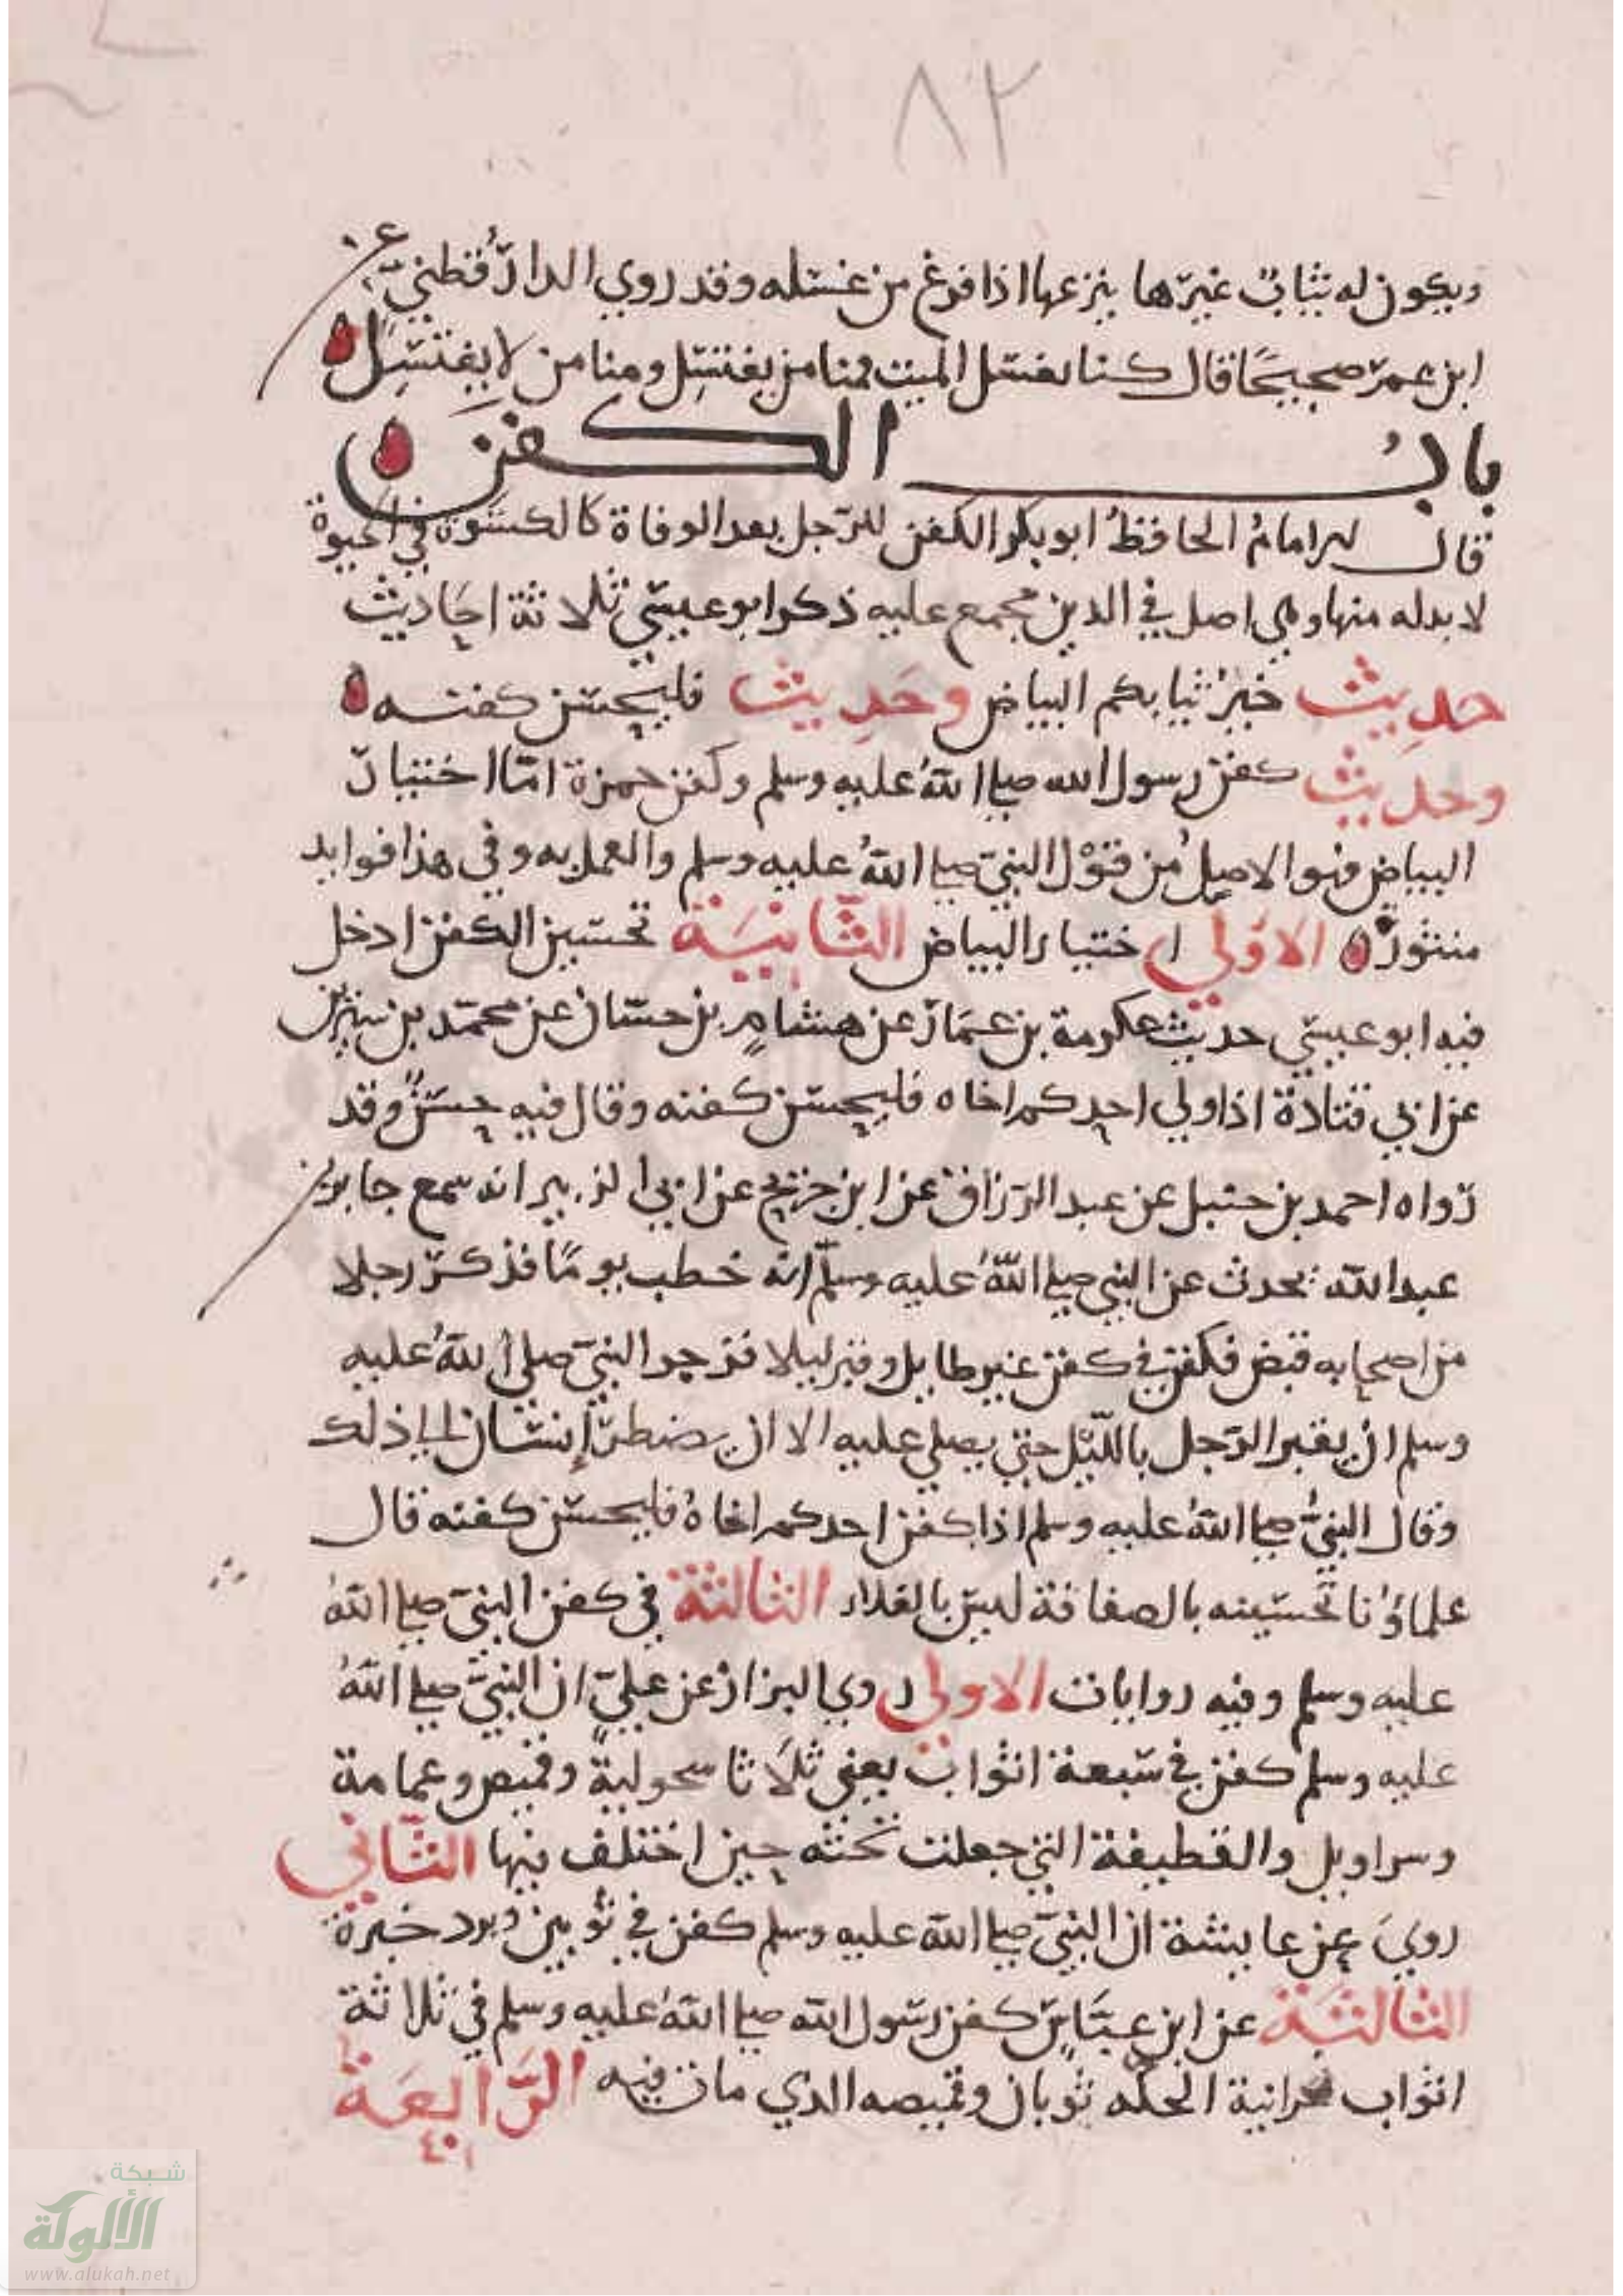 ٨٢
ويكون له ثياب غيرها ينزعها اذا فرغ من غسله وقد روي الدارقطني عن
ابن عمر صحيحا قال كنا نغسل الميت فمنا من يغتسل ومنا من لا يغتسل
باب الكفن
قال الامام الحافظ ابو بكر الكفن للرجل بعد الوفاة كالكسوة في الحيوة
لا بد له منها وهي اصل في الدين مجمع عليه ذكر ابو عيسي ثلاثة احاديث
حديث خير ثيابكم البياض وحديث فليحسن كفنه
وحديث كفن رسول الله صلي الله عليه وسلم وكفن حمزة امّا اختيار
البياض فهو الاصل من قول النبي صلي الله عليه وسلم والعمل به وفي هذا فوايد
منثورة الاولي اختيار البياض الثانية تحسين الكفن ادخل
فيه ابو عيسي حديث عكرمة بن عمار عن هشام بن حسان عن محمد بن سيرين
عن ابي قتادة اذا ولي احدكم اخاه فليحسن كفنه وقال فيه حسن وقد
رواه احمد بن حنبل عن عبد الرزاق عن ابن جريج عن ابي الزبير انه سمع جابر بن
عبد الله يحدث عن النبي صلي الله عليه وسلم انه خطب يوما فذكر رجلا
من اصحابه قبض فكفن في كفن غير طايل وقبر ليلا فزجر النبي صلي الله عليه
وسلم ان يقبر الرجل بالليل حتي يصلي عليه الا ان يضطر إنسان الي ذلك
وقال النبي صلي الله عليه وسلم اذا كفن احدكم اخاه فليحسن كفنه قال
علماؤنا تحسينه بالصفاقة ليس بالغلاء الثالثة في كفن النبي صلي الله
عليه وسلم وفيه روايات الاولي روي البزار عن علي ان النبي صلي الله
عليه وسلم كفن في سبعة اثواب يعني ثلاثا سحولية وقميص وعمامة
وسراويل والقطيفة التي جعلت تحته حين اختلف فيها الثاني
روي عن عايشة ان النبي صلي الله عليه وسلم كفن في ثوبين وبرد حبرة
الثالثة عن ابن عباس كفن رسول الله صلي الله عليه وسلم في ثلاثة
اثواب نجرانية الحلة ثوبان وقميصه الذي مات فيه الرابعة
شبكة
الألوكة
www.alukah.net